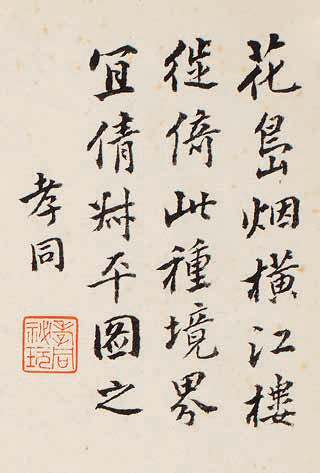 花島烟橫江樓
徙倚此種境界
宜倩叔平圖之
孝同
孝同